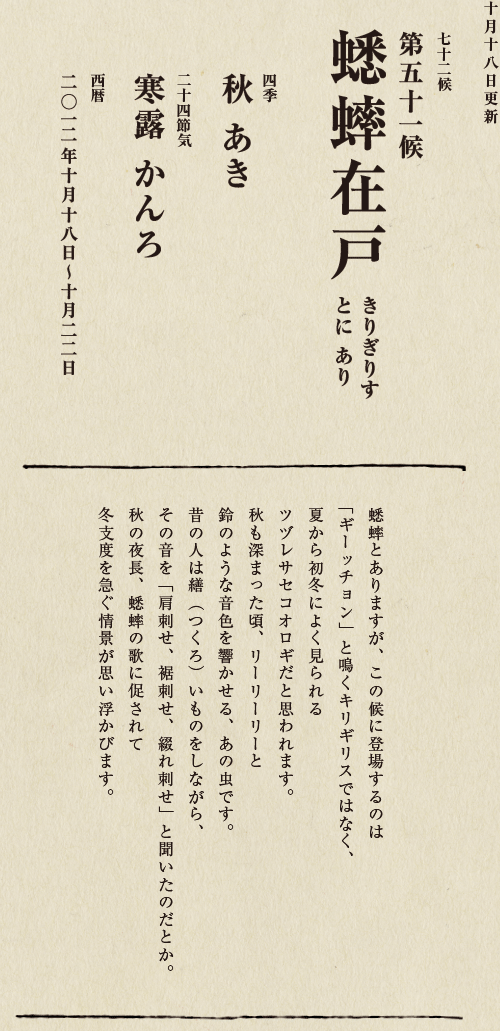 十月十八日更新
七十二候
第五十一候
蟋蟀在戸
きりぎりす
とに あり
四季
秋 あき
二十四節気
寒露 かんろ
西暦
二〇一二年十月十八日～十月二二日
蟋蟀とありますが、この候に登場するのは
「ギーッチョン」と鳴くキリギリスではなく、
夏から初冬によく見られる
ツヅレサセコオロギだと思われます。
秋も深まった頃、リーリーリーと
鈴のような音色を響かせる、あの虫です。
昔の人は繕（つくろ）いものをしながら、
その音を「肩刺せ、裾刺せ、綴れ刺せ」と聞いたのだとか。
秋の夜長、蟋蟀の歌に促されて
冬支度を急ぐ情景が思い浮かびます。